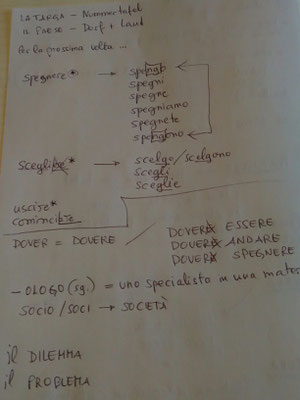 LA TARGA – Nummerntafel
IL PAESE – Dorf + Land
Per la prossima volta ...
spegnere* → spengo
spegni
spegne
spegniamo
spegnete
spengono
scegliere* → scelgo/scelgono
scegli
sceglie
uscire*
cominciare
DOVER = DOVERE / DOVER ESSERE
DOVER ANDARE
DOVER SPEGNERE
– OLOGO (sg.) = uno specialista in una mater
SOCIO / SOCI → SOCIETÀ
il DILEMMA
il PROBLEMA